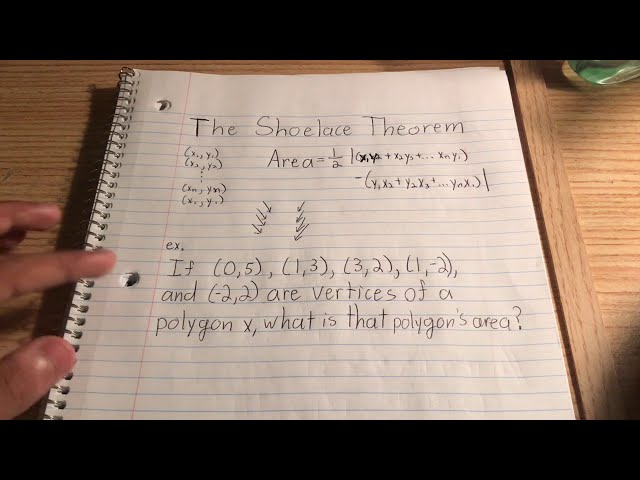 The Shoelace Theorem
(x₁, y₁)
(x₂, y₂)
⋮
(xn, yn)
(x₁, y₁)
Area = 1/2 |(x₁y₂ + x₂y₃ + ... xny₁)
- (y₁x₂ + y₂x₃ + ... ynx₁)|
ex.
If (0,5), (1,3), (3,2), (1,-2),
and (-2,2) are vertices of a
polygon x, what is that polygon's area?